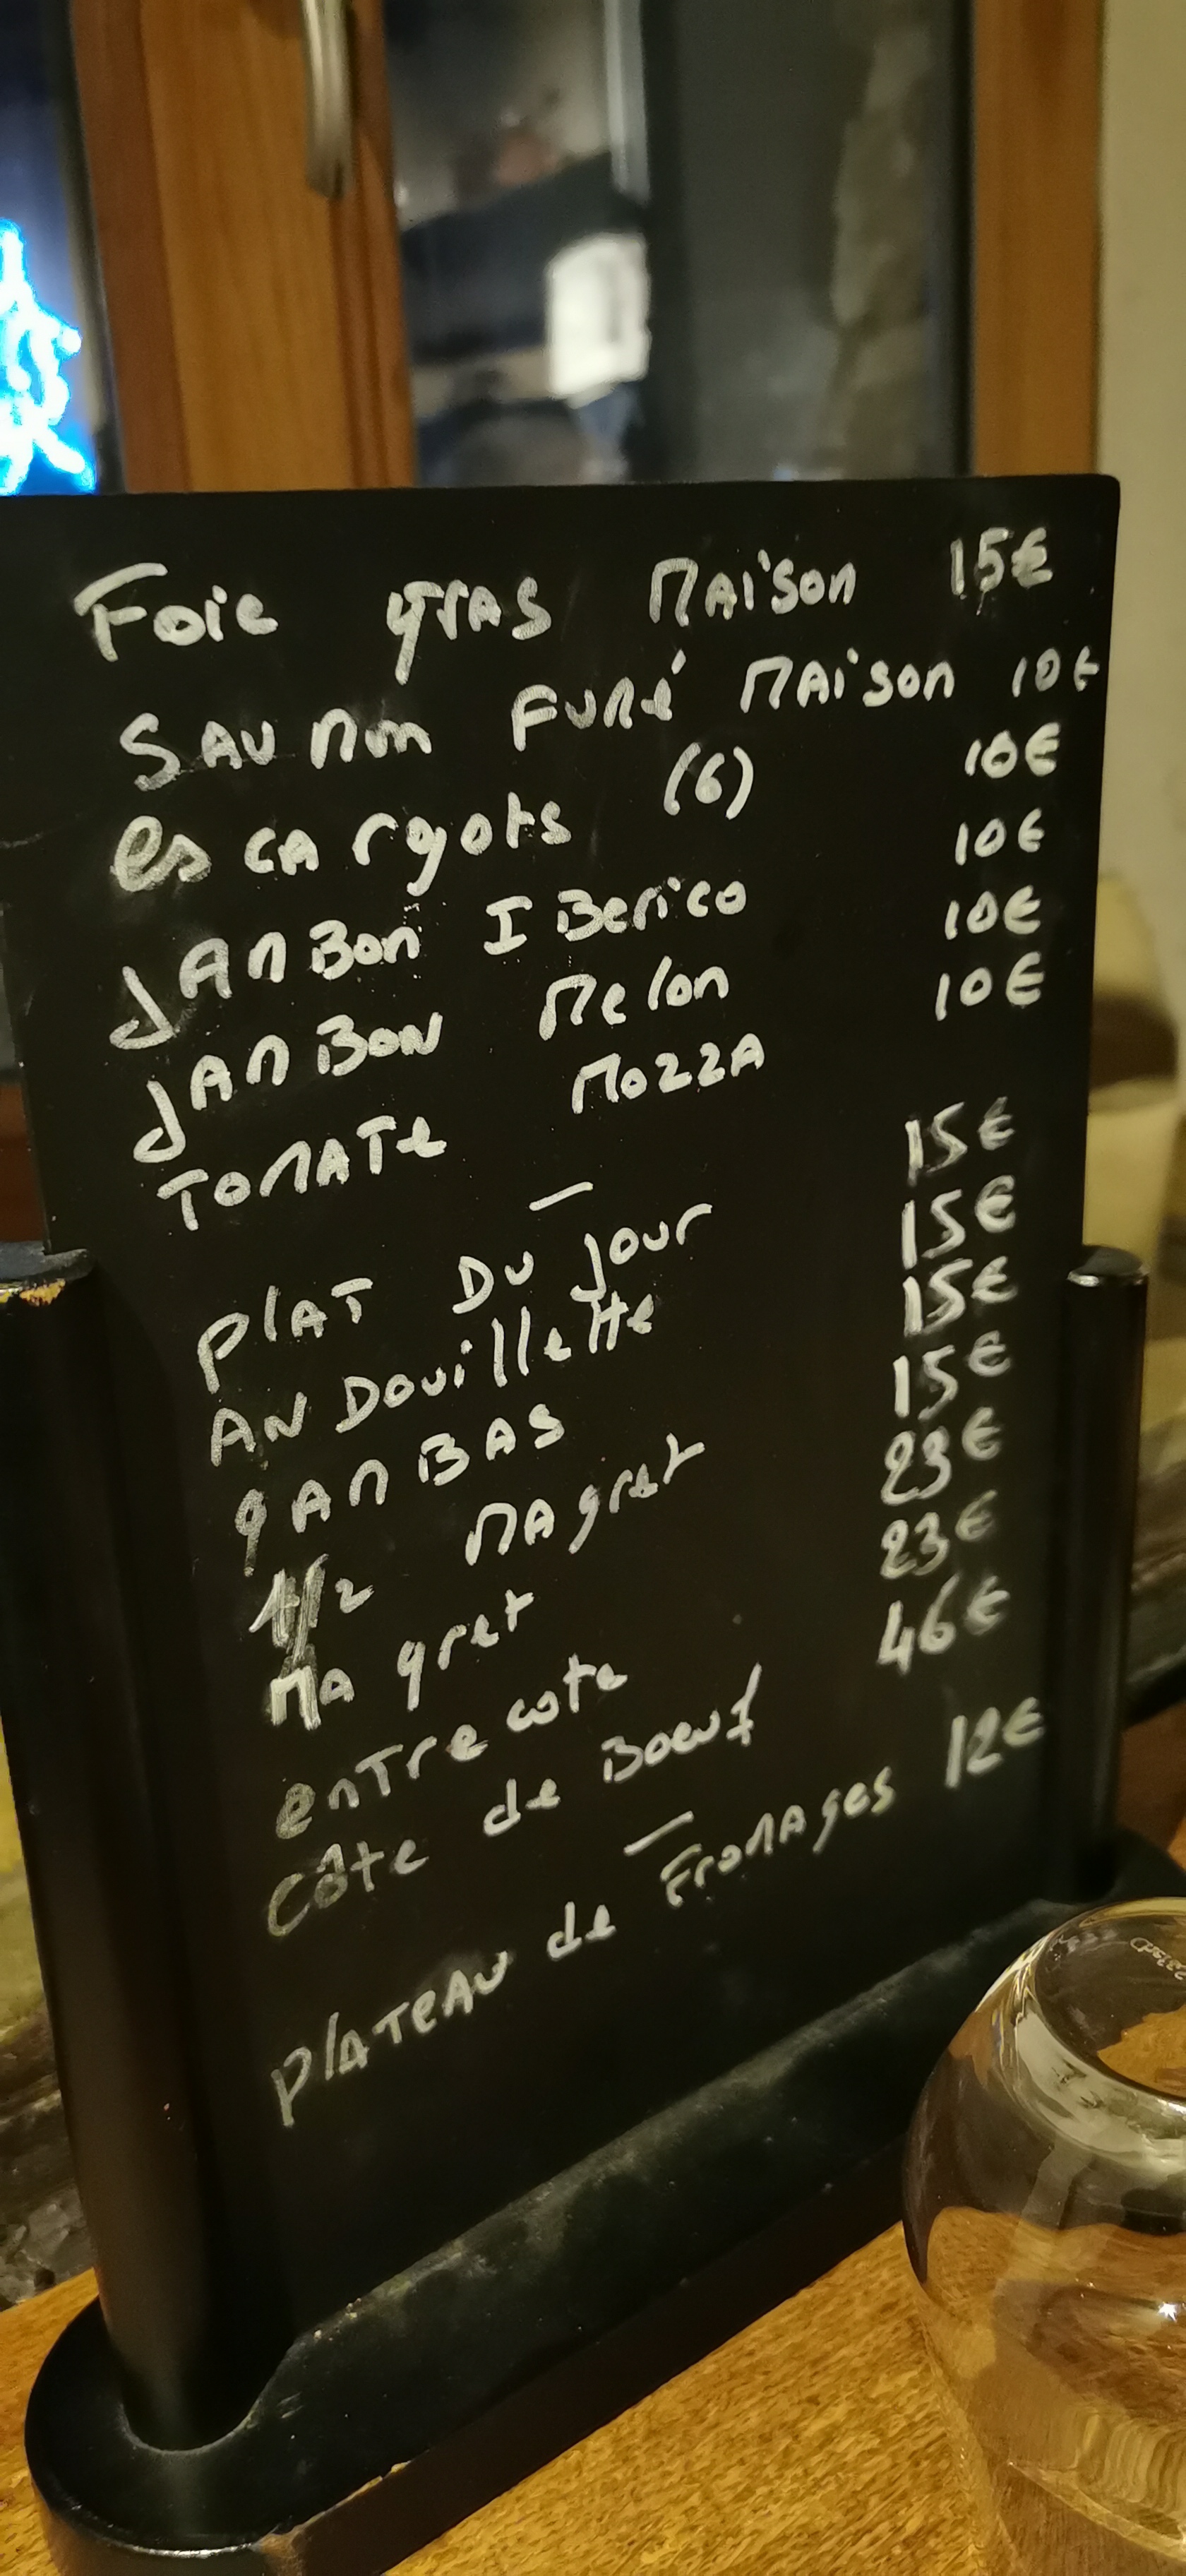 Foie gras Maison 15€
SAUMON FUMÉ MAISON 10€
escargots (6) 10€
JAMBON IBERICO 10€
JAMBON Melon 10€
TOMATE MOZZA 10€
—
PLAT DU JOUR 15€
ANDouillette 15€
gAMBAS 15€
1/2 MAgret 15€
MAgret 23€
entrecote 23€
Côte de Boeuf 46€
—
PLATEAU de FROMAGES 12€